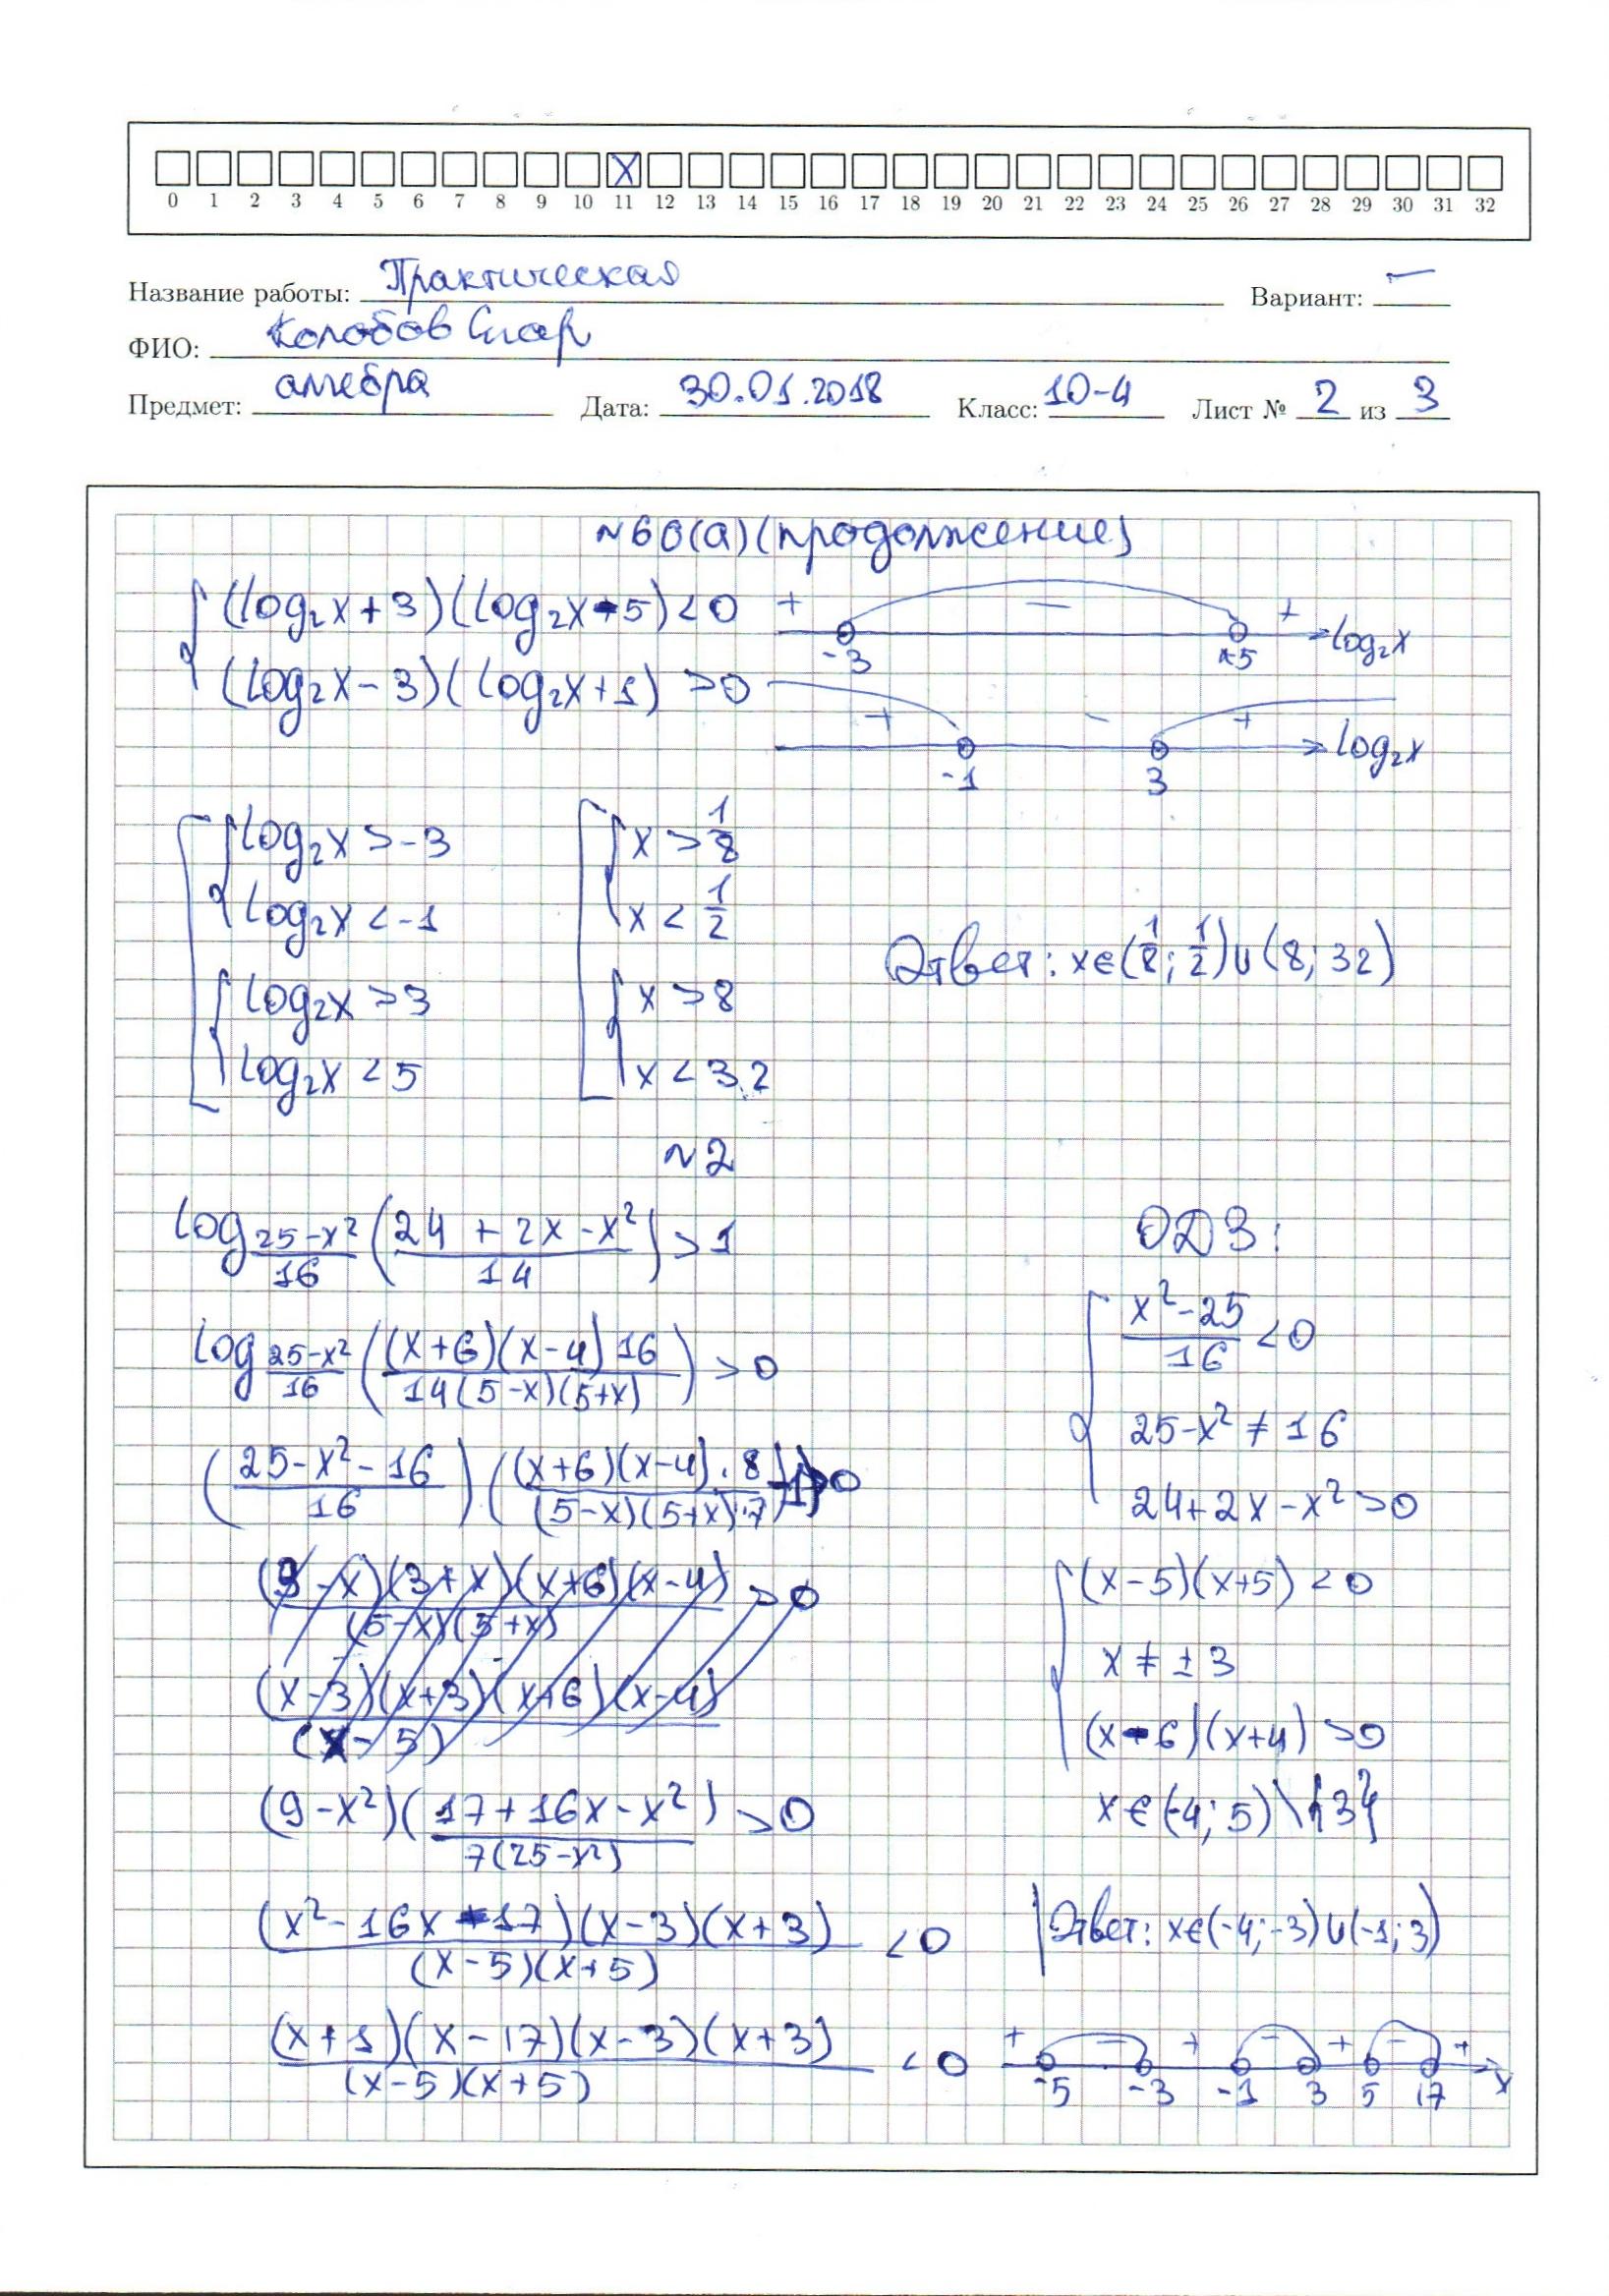 0 1 2 3 4 5 6 7 8 9 10 11 12 13 14 15 16 17 18 19 20 21 22 23 24 25 26 27 28 29 30 31 32
Название работы: Практическая Вариант: —
ФИО: Колобов
Предмет: алгебра Дата: 30.01.2018 Класс: 10-4 Лист № 2 из 3
№60(а)(продолжение)
(log₂x+3)(log₂x-5)<0
+ — +
-3 +5 log₂x
(log₂x-3)(log₂x+1)>0
+ - +
-1 3 log₂x
log₂x>-3 x>1/8
log₂x<-1 x<1/2
Ответ: x∈(1/8; 1/2)∪(8; 32)
log₂x>3 x>8
log₂x<5 x<32
№2
log_{(25-x²)/16}((24+2x-x²)/14)>1
log_{(25-x²)/16}((x+6)(x-4)16/(14(5-x)(5+x)))>0
((25-x²-16)/16)((x+6)(x-4)·8/((5-x)(5+x)·7)-1)>0
(3-x)(3+x)(x+6)(x-4)/((5-x)(5+x))>0
(x-3)(x+3)(x+6)(x-4)/(x-5)
(9-x²)((17+16x-x²)/(7(25-x²)))>0
(x²-16x-17)(x-3)(x+3)/((x-5)(x+5))<0
(x+1)(x-17)(x-3)(x+3)/((x-5)(x+5))<0
ОДЗ:
(x²-25)/16<0
25-x²≠16
24+2x-x²>0
(x-5)(x+5)<0
x≠±3
(x-6)(x+4)>0
x∈(-4; 5)\{3}
Ответ: x∈(-4;-3)∪(-1;3)
+ - + - + - +
-5 -3 -1 3 5 17 x